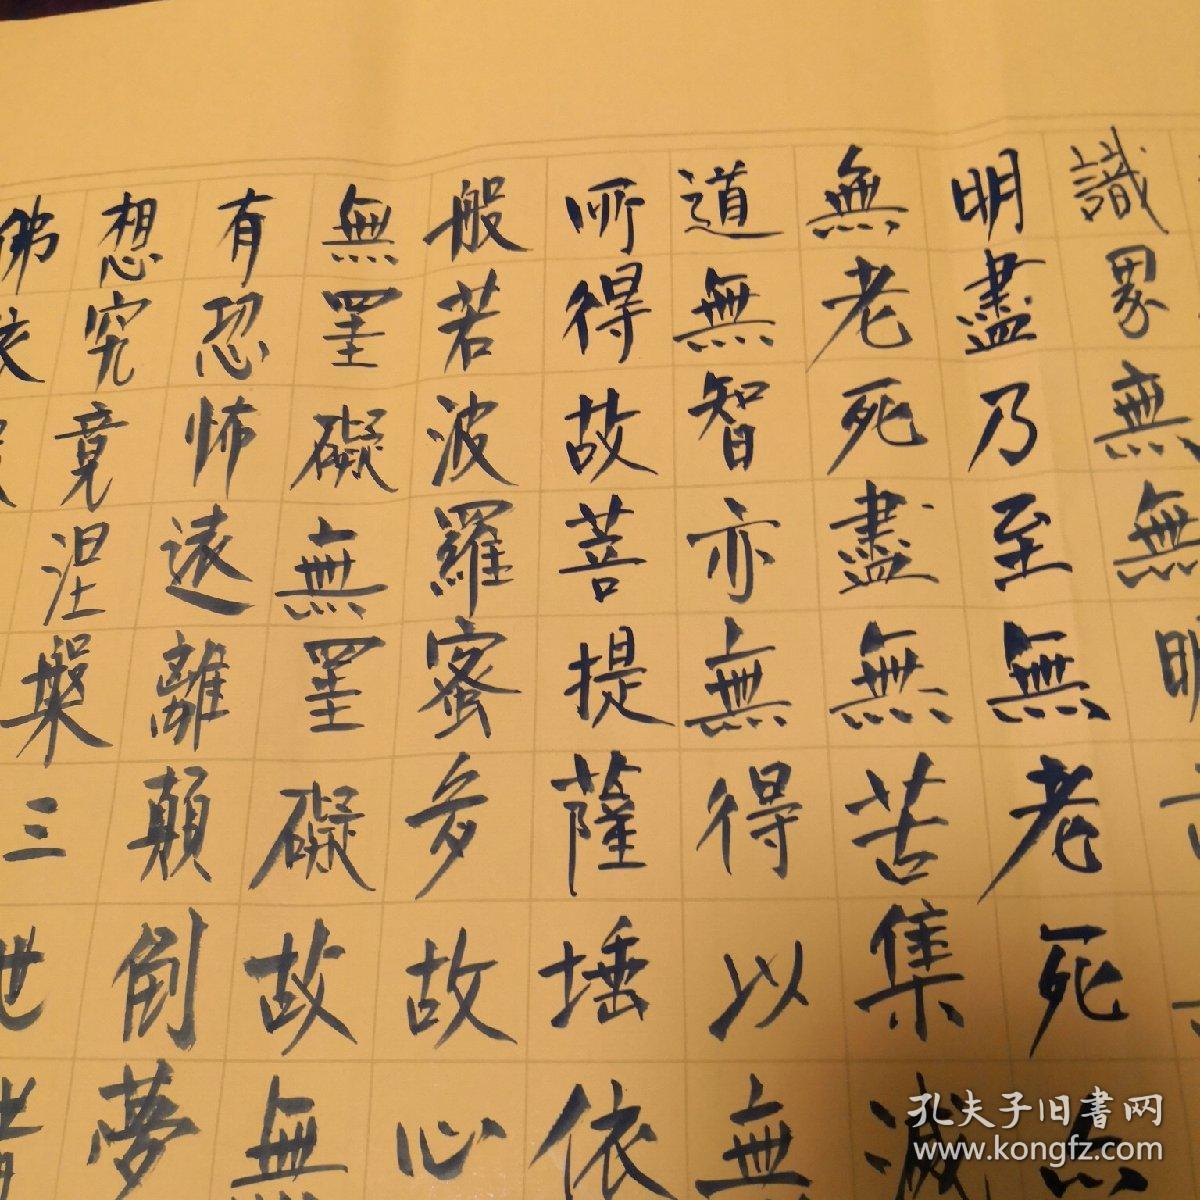 無無明
識界
明盡乃至無老死
無老死盡無苦集滅
道無智亦無得以無
所得故菩提薩埵依
般若波羅蜜多故心
無罣礙無罣礙故無
有恐怖遠離顛倒夢
想究竟涅槃三世
佛
孔夫子旧书网
www.kongfz.com